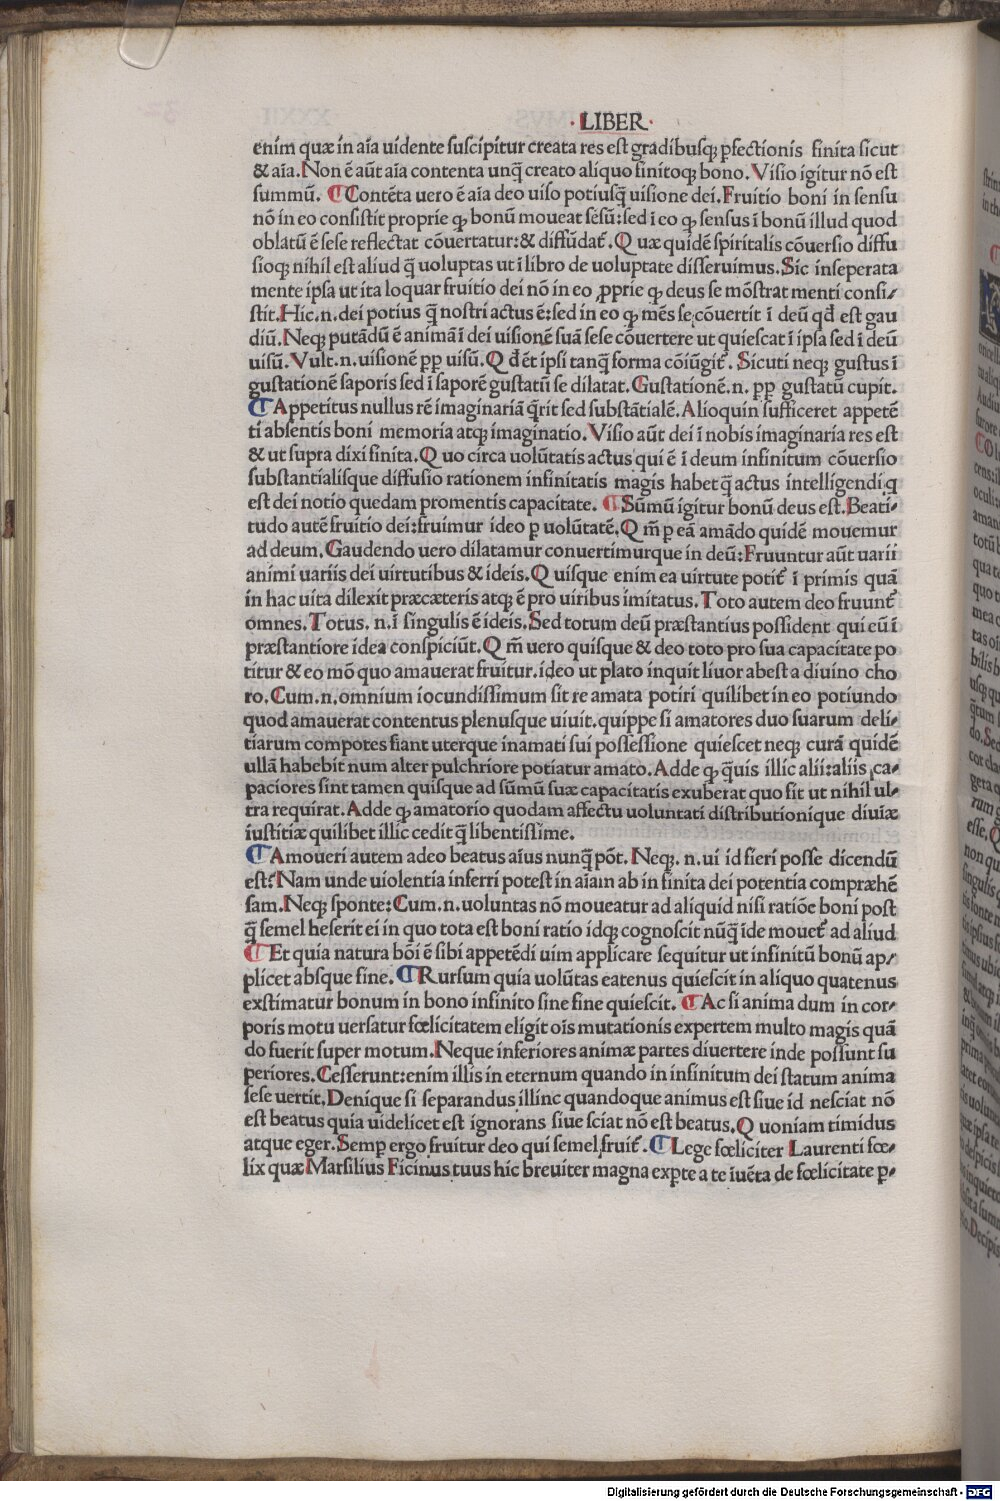 ·LIBER·
enim quæ in aīa uidente suscipitur creata res est gradibusq; pfectionis finita sicut
& aīa. Non ē aūt aīa contenta unq̄ creato aliquo finitoq; bono. Visio igitur nō est
summū. ¶ Contēta uero ē aīa deo uiso potiusq̄ uisione dei. Fruitio boni in sensu
nō in eo consistit proprie ꝙ bonū moueat sēsū: sed ī eo ꝙ sensus ī bonū illud quod
oblatū ē sese reflectat cōuertatur: & diffūdat᷑. Quæ quidē spiritalis cōuersio diffu
sioq; nihil est aliud q̄ uoluptas ut ī libro de uoluptate disseruimus. Sic inseperata
mente ipsa ut ita loquar fruitio dei nō in eo ꝓprie ꝙ deus se mōstrat menti consi/
stit. Hic .n. dei potius q̄ nostri actus ē: sed in eo ꝙ mēs se cōuertit ī deū qđ est gau
diū. Neq; putādū ē animā ī dei uisionē suā sese cōuertere ut quiescat ī ipsa sed ī deū
uisū. Vult .n. uisionē pp uisū. Qđ ēt ipsi tanq̄ forma cōiūgit᷑. Sicuti neq; gustus ī
gustationē saporis sed ī saporē gustatū se dilatat. Gustationē .n. pp gustatū cupit.
¶ Appetitus nullus rē imaginariā q̄rit sed substātialē. Alioquin sufficeret appetē
ti absentis boni memoria atq; imaginatio. Visio aūt dei ī nobis imaginaria res est
& ut supra dixi finita. Quo circa uolūtatis actus qui ē ī deum infinitum cōuersio
substantialisque diffusio rationem infinitatis magis habet q̄ actus intelligendi q
est dei notio quedam promentis capacitate. ¶ Sūmū igitur bonū deus est. Beati/
tudo autē fruitio dei: fruimur ideo p uolūtatē. Qm̄ p eā amādo quidē mouemur
ad deum. Gaudendo uero dilatamur conuertimurque in deū: Fruuntur aūt uarii
animi uariis dei uirtutibus & ideis. Quisque enim ea uirtute potit᷑ ī primis quā
in hac uita dilexit præcæteris atq; ē pro uiribus imitatus. Toto autem deo fruunt᷑
omnes. Totus .n. ī singulis ē ideis. Sed totum deū præstantius possident qui eū ī
præstantiore idea conspiciūt. Qm̄ uero quisque & deo toto pro sua capacitate po
titur & eo mō quo amauerat fruitur. ideo ut plato inquit liuor abest a diuino cho
ro. Cum .n. omnium iocundissimum sit re amata potiri quilibet in eo potiundo
quod amauerat contentus plenusque uiuit. quippe si amatores duo suarum deli/
tiarum compotes fiant uterque inamati sui possessione quiescet neq; curā quidē
ullā habebit num alter pulchriore potiatur amato. Adde ꝙ q̄uis illic alii: aliis ca/
paciores sint tamen quisque ad sūmū suæ capacitatis exuberat quo fit ut nihil ul/
tra requirat. Adde ꝙ amatorio quodam affectu uoluntati distributionique diuiæ
iustitiæ quilibet illic cedit q̄ libentissime.
¶ Amoueri autem adeo beatus aīus nunq̄ pōt. Neq; .n. ui id fieri posse dicendū
est: Nam unde uiolentia inferri potest in aīam ab in finita dei potentia compræhē
sam. Neq; sponte: Cum .n. uoluntas nō moueatur ad aliquid nisi ratiōe boni post
q̄ semel heserit ei in quo tota est boni ratio idq; cognoscit nūq̄ īde mouet᷑ ad aliud
¶ Et quia natura bōi ē sibi appetēdi uim applicare sequitur ut infinitū bonū ap/
plicet absque fine. ¶ Rursum quia uolūtas eatenus quiescit in aliquo quatenus
exstimatur bonum in bono infinito sine fine quiescit. ¶ Ac si anima dum in cor/
poris motu uersatur fœlicitatem eligit oīs mutationis expertem multo magis quā
do fuerit super motum. Neque inferiores animæ partes diuertere inde possunt su
periores. Cesserunt: enim illis in eternum quando in infinitum dei statum anima
sese uertit. Denique si separandus illinc quandoque animus est siue id nesciat nō
est beatus quia uidelicet est ignorans siue sciat nō est beatus. Quoniam timidus
atque eger. Semp ergo fruitur deo qui semel fruit᷑. ¶ Lege fœliciter Laurenti fœ/
lix quæ Marsilius Ficinus tuus hic breuiter magna expte a te īuēta de fœlicitate p/
Digitalisierung gefördert durch die Deutsche Forschungsgemeinschaft - DFG